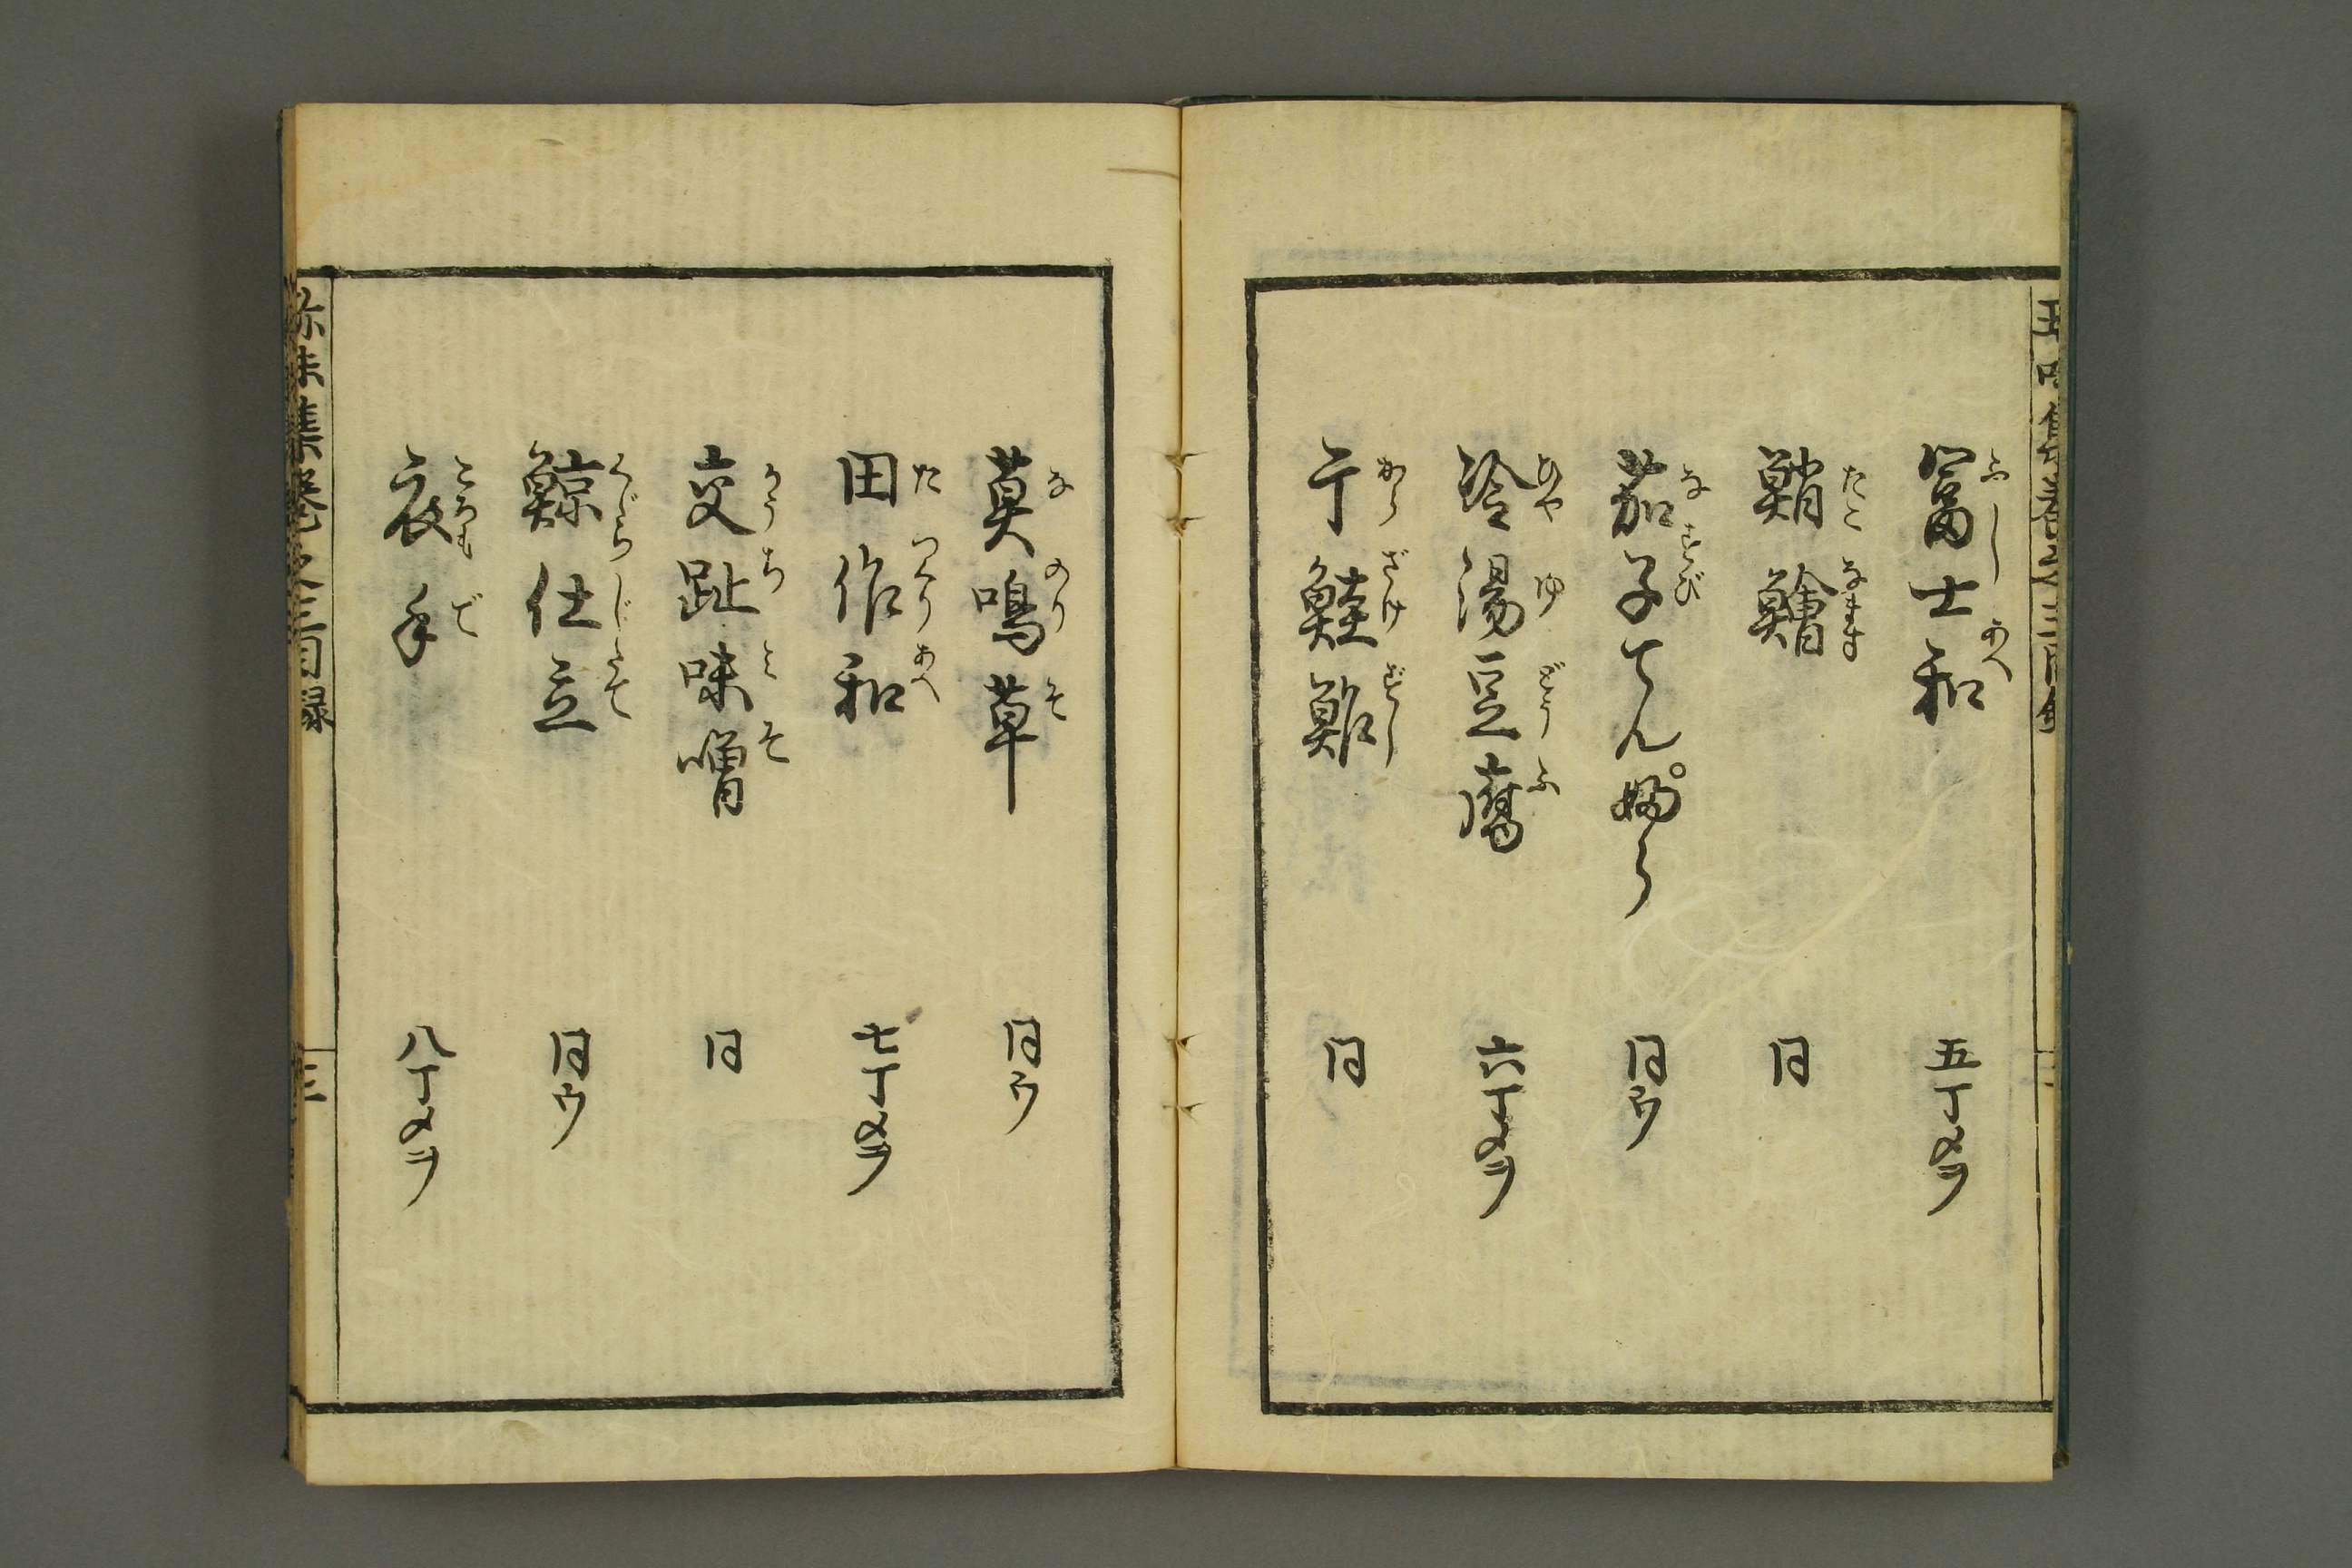 冨士和 五丁メヲ
ふじ あへ
鮹鱠 同
たこ なます
茄子てん婦゜ら 同ウ
なすび
冷湯豆腐 六丁メヲ
ひや ゆ どうふ
干鮭鮓 同
から ざけ ずし
莫鳴草 同ウ
な のり そ
田作和 七丁メヲ
た つくり あへ
交趾味噌 同
かう ち みそ
鯨仕立 同ウ
くじら じたて
衣手 八丁メヲ
ころも で
味集巻之三目録 三